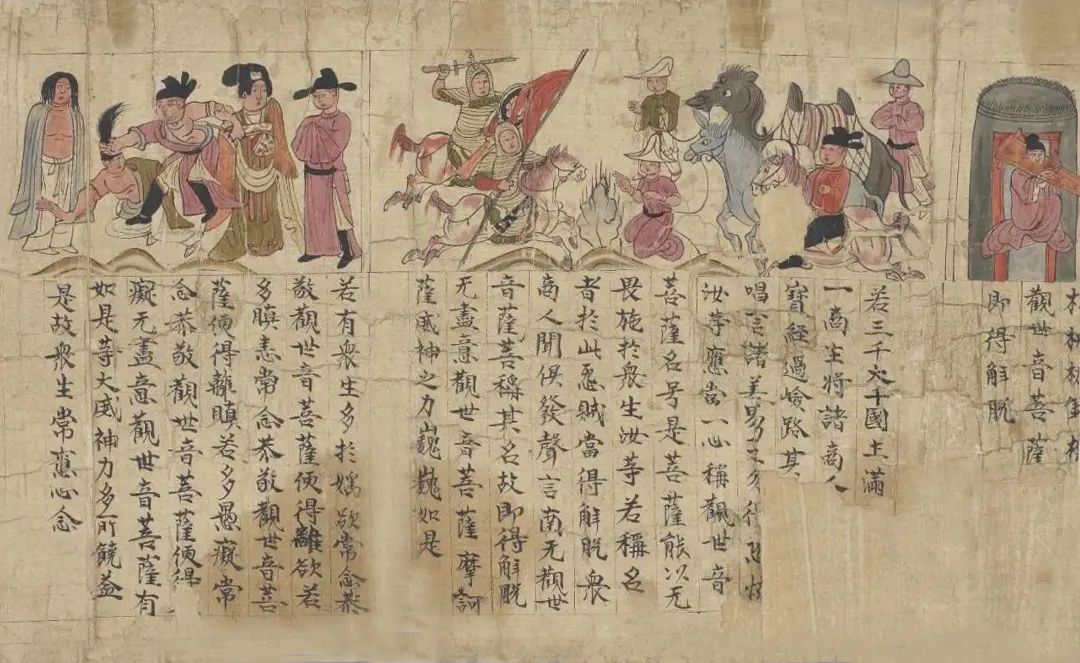 觀世音菩薩
即得解脫
若三千大千國土滿
一商主將諸商人
寶經過嶮路其
唱言諸善男子勿得
汝等應當一心稱觀世音
菩薩名号是菩薩能以无
畏施於衆生汝等若稱名
者於此惡賊當得解脫衆
商人聞俱發聲言南无觀世
音薩菩稱其名故即得解脫
无盡意觀世音菩薩摩訶
薩威神之力巍巍如是
若有衆生多於婬欲常念恭
敬觀世音菩薩便得離欲若
多瞋恚常念恭敬觀世音菩
薩便得離瞋若多愚癡常
念恭敬觀世音菩薩便得
癡无盡意觀世音菩薩有
如是等大威神力多所饒益
是故衆生常應心念